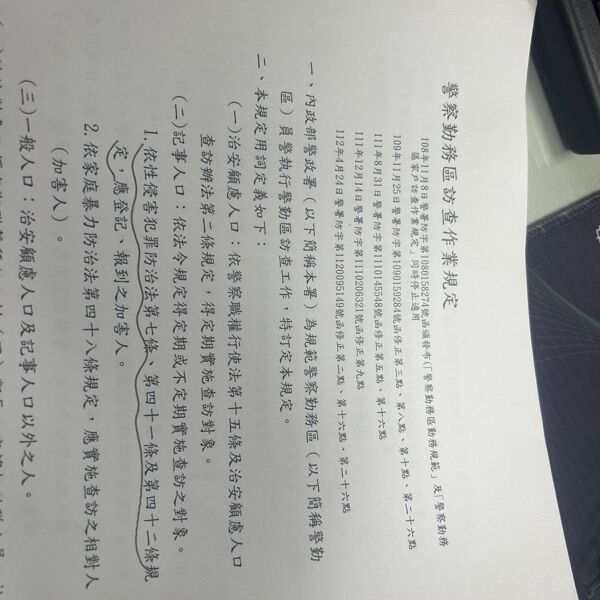 警察勤務區訪查作業規定
108年11月8日警署防字第1080158274號函頒發布(「警察勤務區勤務規範」及「警察勤務
區家戶訪查作業規定」同時停止適用
109年11月25日警署防字第1090159284號函修正第三點、第八點、第十點、第二十六點
111年8月31日警署防字第1110145548號函修正第五點、第十六點
111年12月14日警署防字第1110206321號函修正第九點
112年4月24日警署防字第1120095149號函修正第二點、第十六點、第二十六點
一、內政部警政署（以下簡稱本署）為規範警察勤務區（以下簡稱警勤
區）員警執行警勤區訪查工作，特訂定本規定。
二、本規定用詞定義如下：
(一)治安顧慮人口：依警察職權行使法第十五條及治安顧慮人口
查訪辦法第二條規定，得定期實施查訪對象。
(二)記事人口：依法令規定得定期或不定期實施查訪之對象。
1.依性侵害犯罪防治法第七條、第四十一條及第四十二條規
定，應登記、報到之加害人。
2.依家庭暴力防治法第四十八條規定，應實施查訪之相對人
（加害人）。
(三)一般人口：治安顧慮人口及記事人口以外之人。